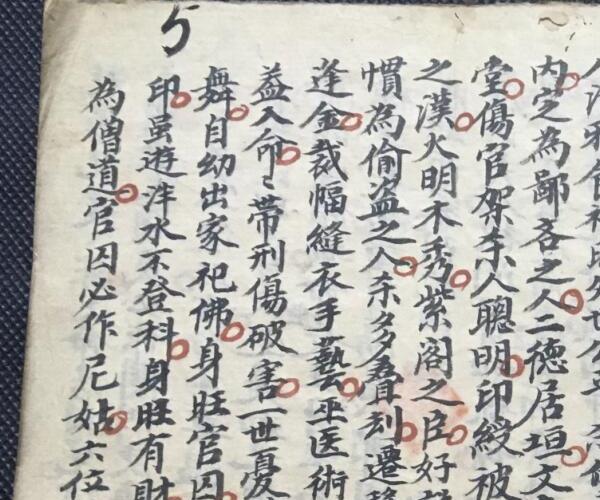 内定為鄙吝之人二德居垣文
堂傷官架杀人聰明印綬被
之漢火明木秀紫阁之臣好
慣為偷盗之人杀多疊刻遷
逢金裁幅縫衣手藝巫医術
益入命〻帶刑傷破害一世憂
舞自幼出家祀佛身旺官囚
印虽遊泮水不登科身旺有財
為僧道官囚必作尼姑六位
5